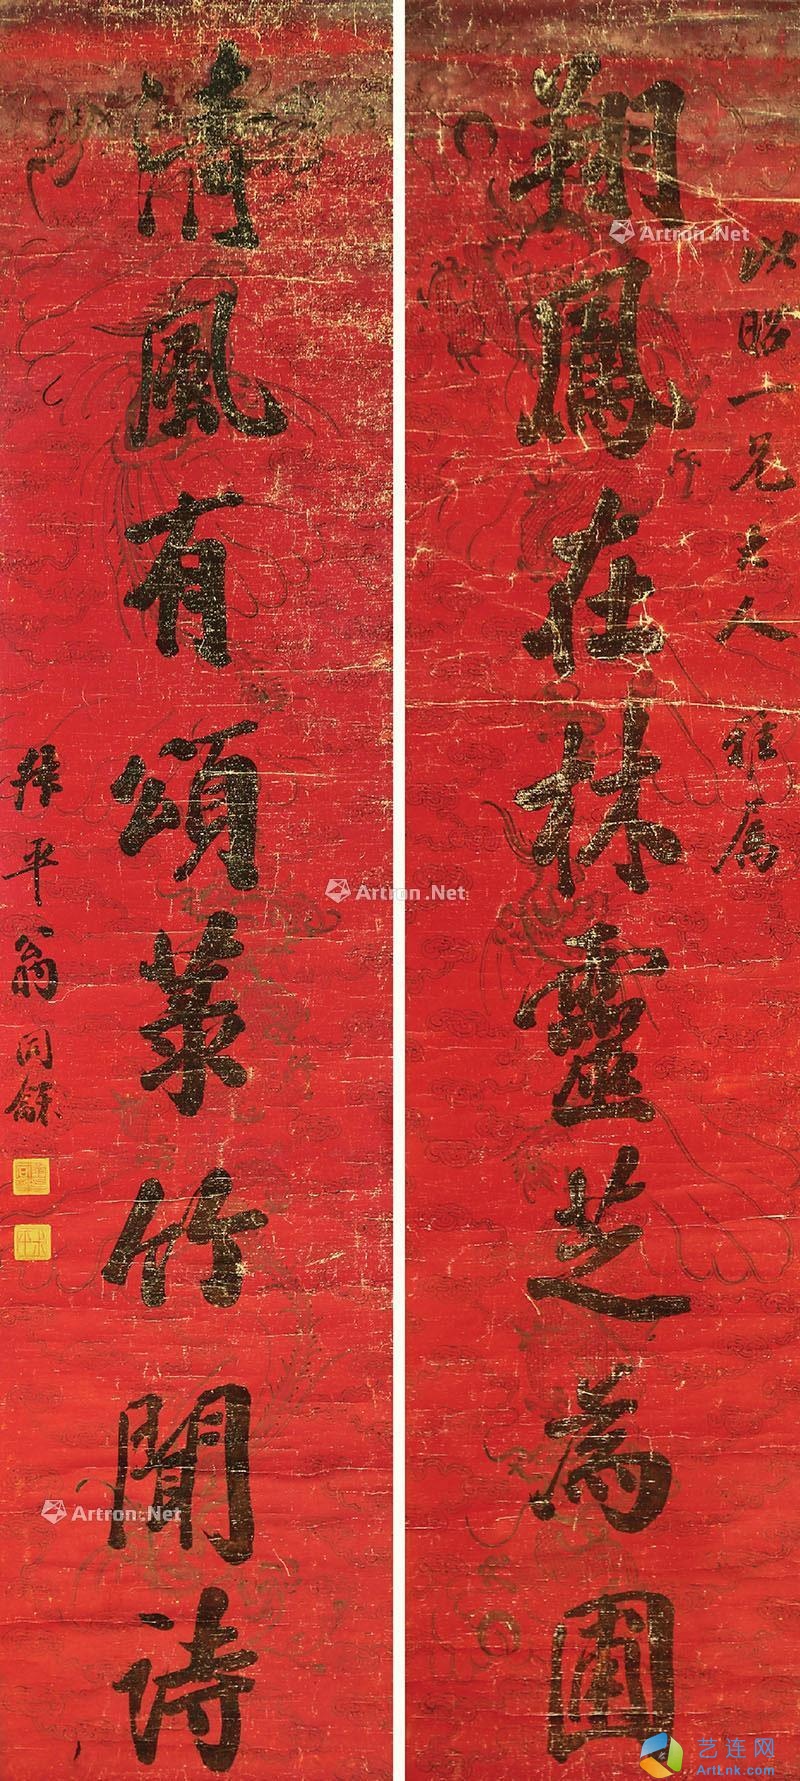 以昭一兄大人 雅属
翔鳳在林靈芝為圃
清風有頌菉竹聞詩
叔平翁同龢
Artron.Net
Artron.Net
Artron.Net
艺连网
ArtLnk.com